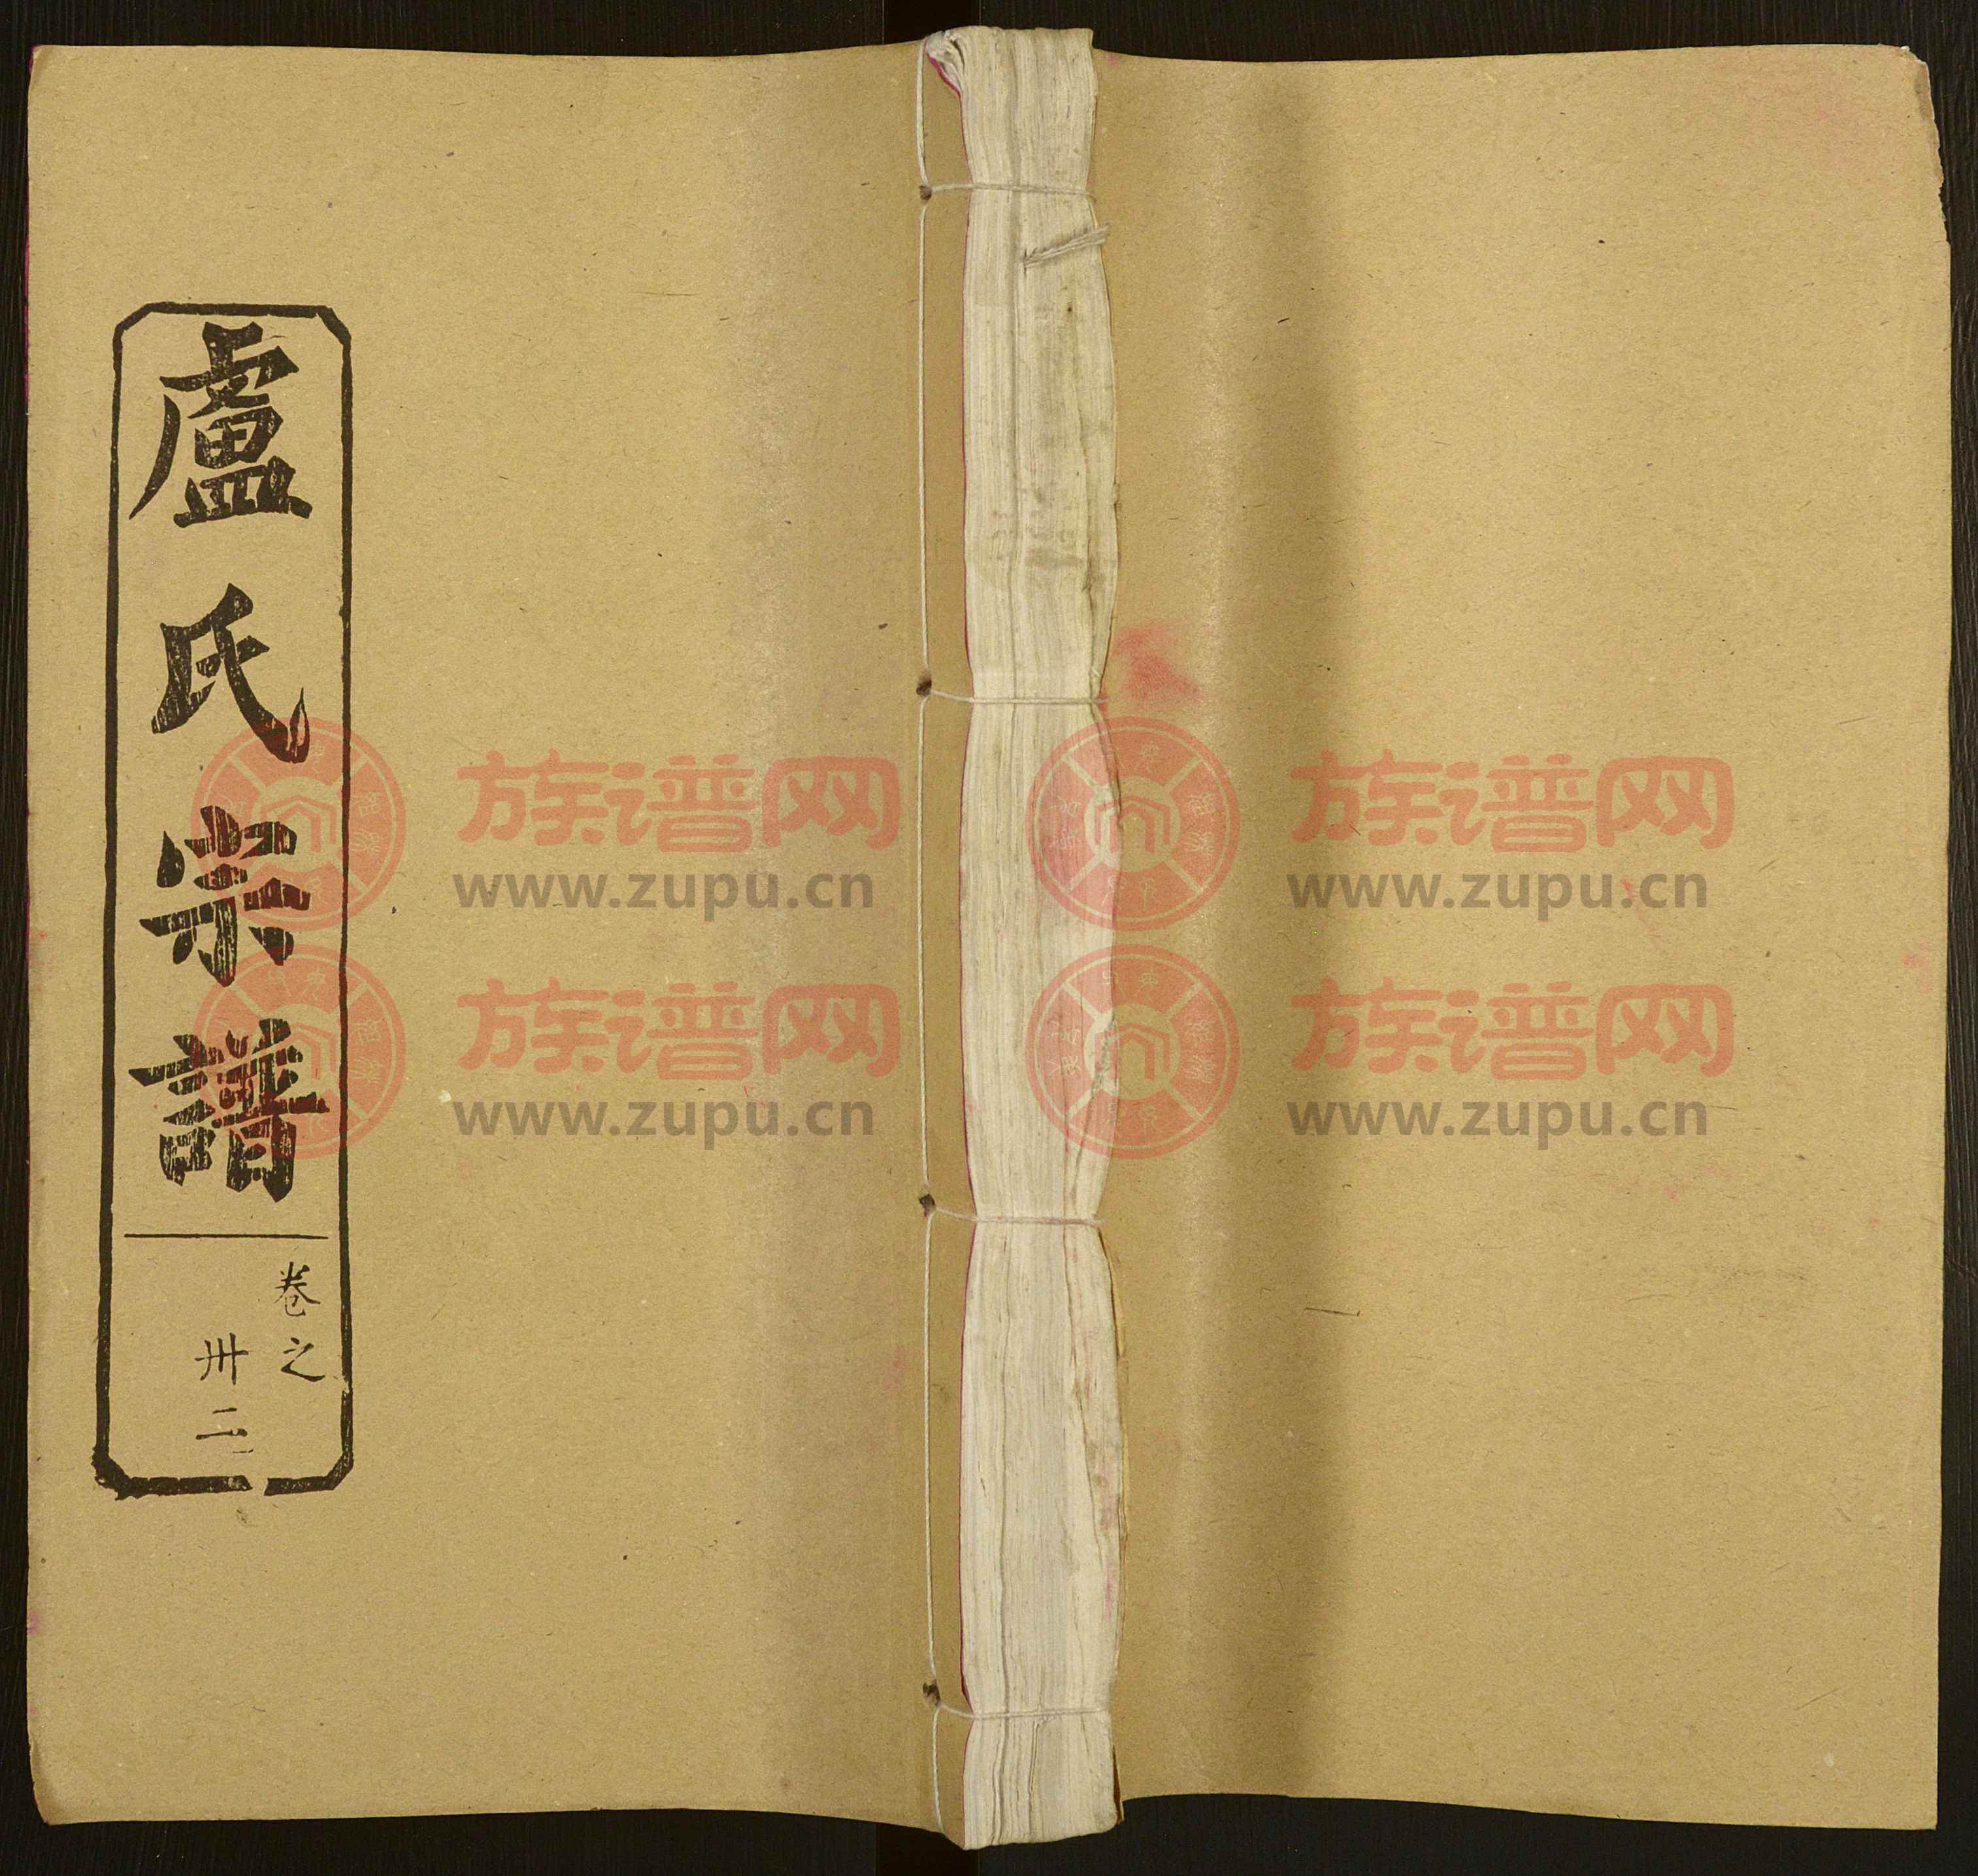 盧氏宗譜
卷之
卅二
族谱网
www.zupu.cn
族谱网
www.zupu.cn
族谱网
www.zupu.cn
族谱网
www.zupu.cn